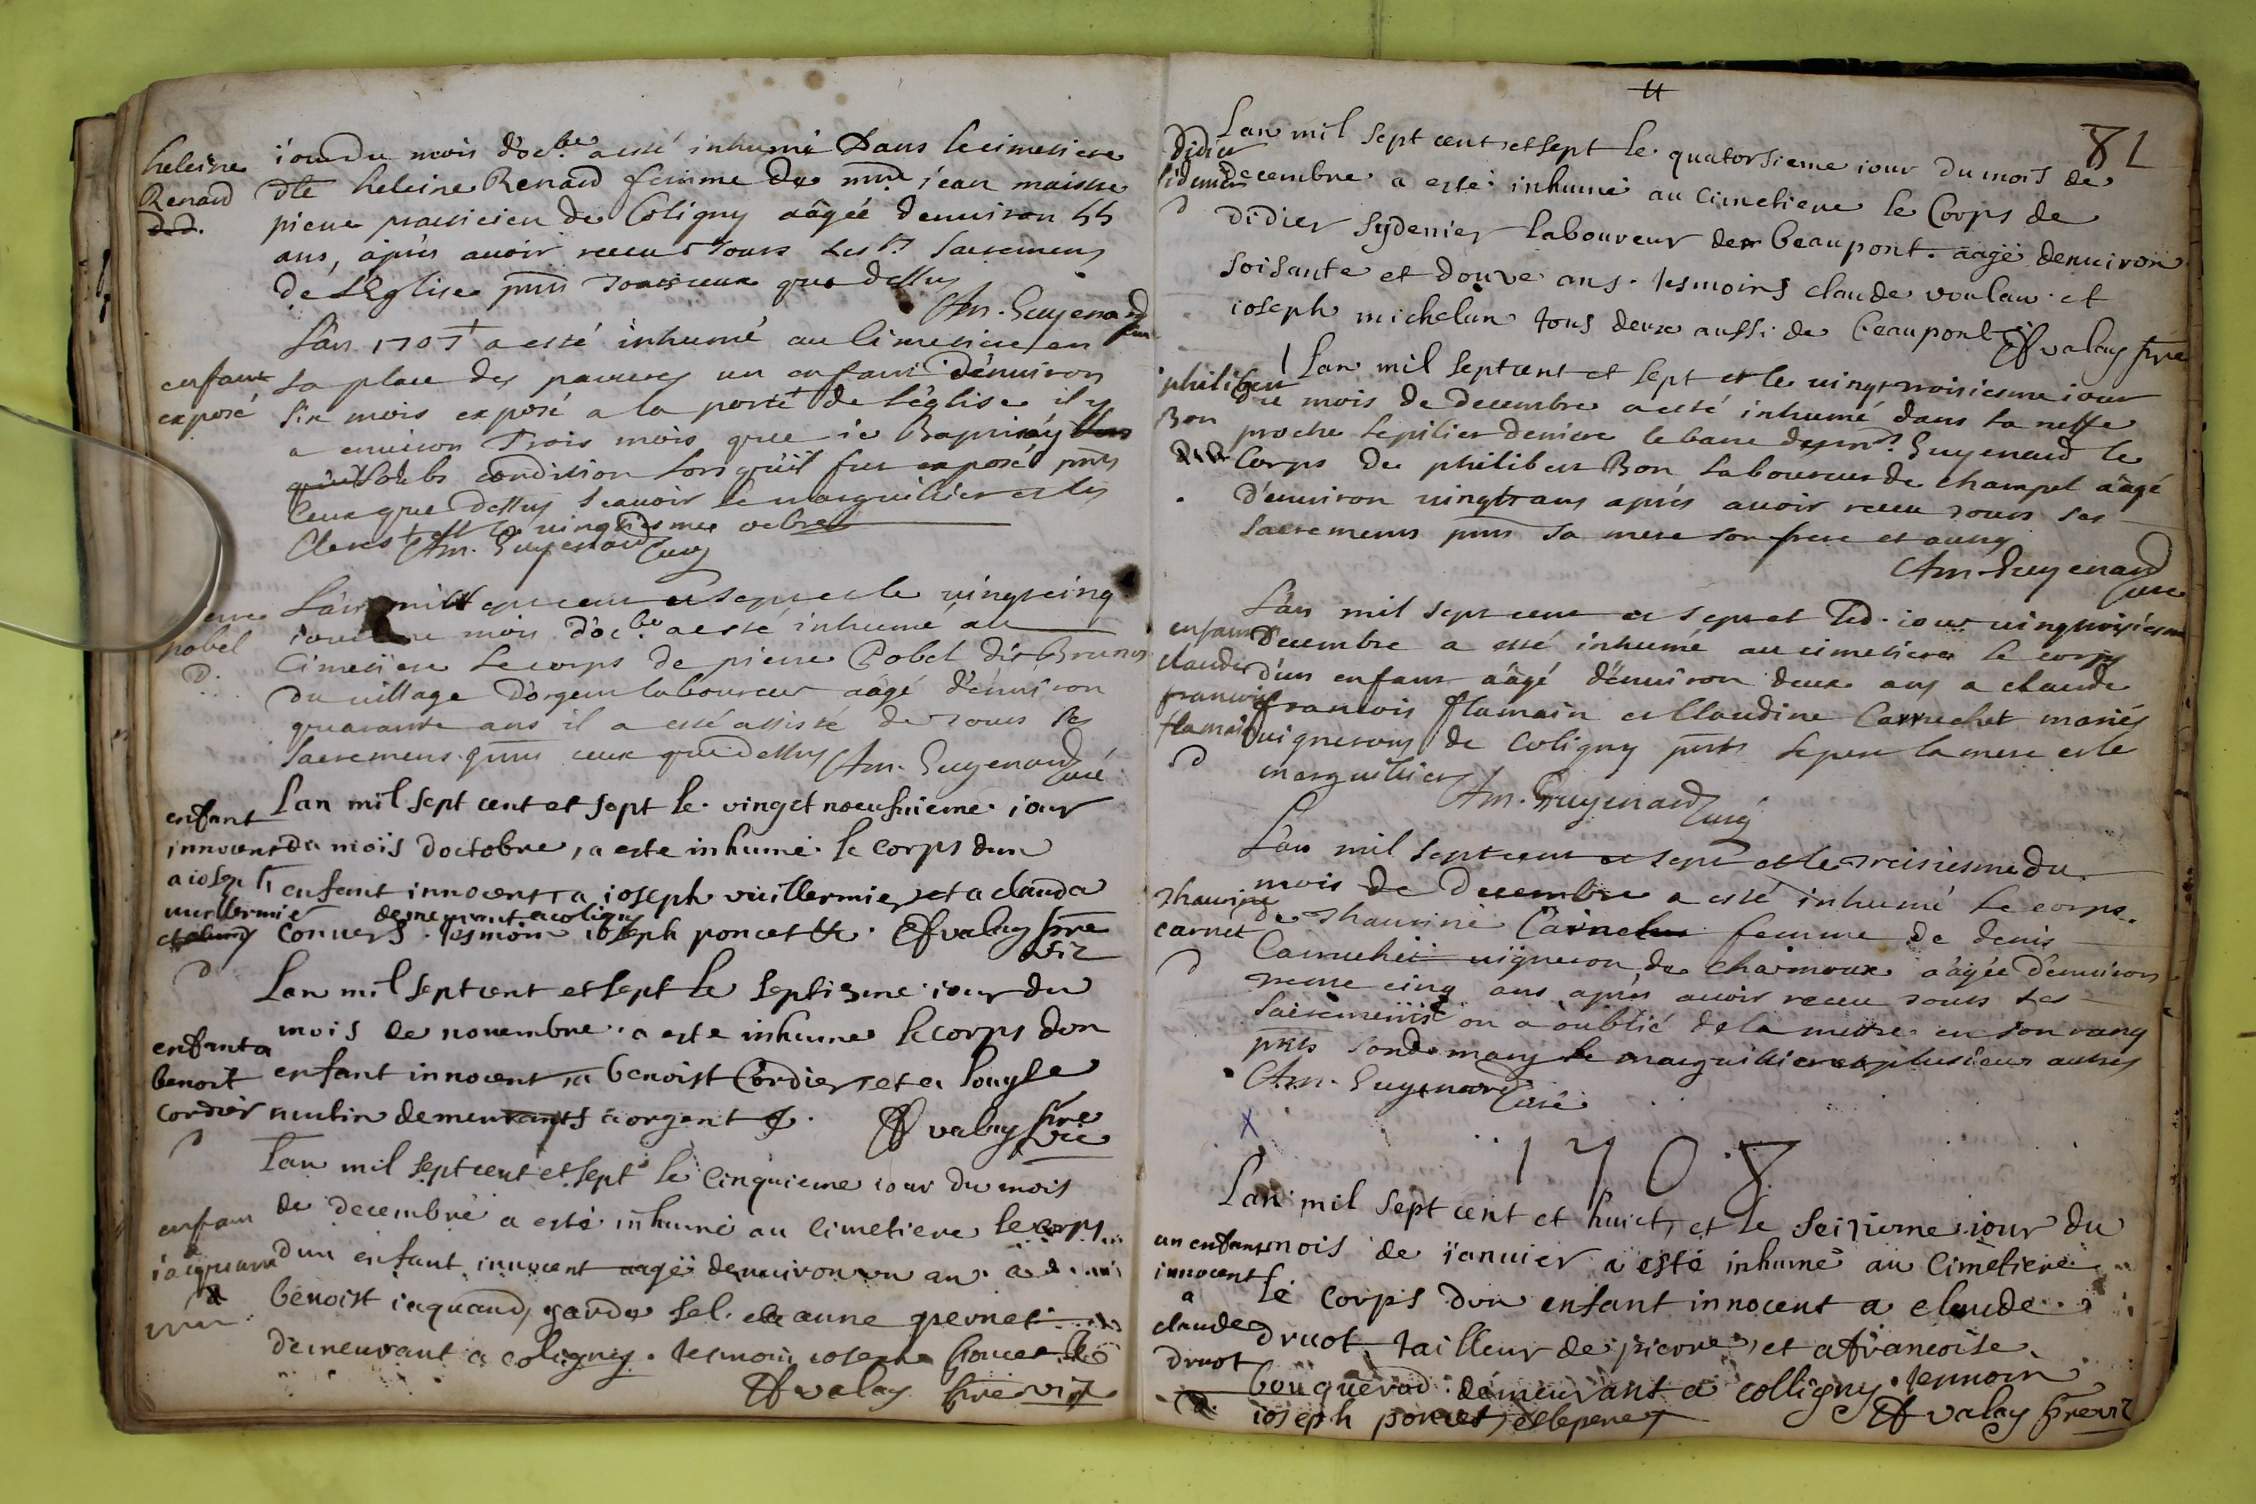 heleine
Renard
iour du mois d'oc.bre a esté inhumé Dans le cimetiere
dlle heleine Renard femme du jean maistre
pierre praticien de Coligny aâgée d'enuiron 55
ans, après auoir receu tous les Sacremens
de L'Eglise pnts tousceux que dessus
Am. Guyenard
enfant
exposé
L'an 1707 a esté inhumé au Cimetiere en
la place des pauures un enfant d'enuiron
six mois exposé a la porte de l'eglise il y
a enuiron Trois mois que ie Baptisáy
soubs condition lors qu'il fut exposé pnts
ceux que dessus scauoir le marguillier et les
Clercs le vingtiesme octbre
Am. Guyenard Curé
nobel
d.
L'an mil sept cent et sept et le vingt cinq
iour mois d'oc.bre a esté inhumé au
Cimetiere le corps de pierre dit Brunet
du village D'orgent laboureur aâgé d'enuiron
quarante ans il a esté assisté de tous les
Sacremens pnts ceux que dessus Am. Guyenard Curé
enfant
innocent
a ioseph
vuillermier
d
Lan mil sept cent et sept le vingt noeufuieme iour
du mois doctobre, a este inhumé le corps dun
enfant innocent a ioseph vuillermier et a clauda
demeurant a coligny
conuers. tesmoin ioseph poncet &. Cf valay pre
vic
enfant a
benoit
cordier
d
Lan mil sept cent et sept le septisme iour du
mois de nouembre a este inhume le corps don
enfant innocent, a benoist Cordier, et a
mulin demeurants a orgent &. Cf valay pre
vic
enfant
a
iaquand
Lan mil sept cent et sept le cinquieme iour du mois
de decembre a esté inhumé au cimetiere le corps
dun enfant innocent aagé denuiron un an a
benoist iaquand, garde sel et a anne pernet
demeurant a coligny. tesmoin ioseph poncet &
Cf valay pre vic
81
Didier
sidenier
d
Lan mil sept cent et sept le quatorsieme iour du mois de
decembre a esté inhumé au cimetiere le Corps de
didier sydenier laboureur de beaupont. aagé denuiron
soisante et douze ans. tesmoins claude voulan et
ioseph michelun tous deux aussi de beaupont Cf valay pre
philibert
Bon
Lan mil sept cent et sept et le vingt troisiesme iour
du mois de Decembre a esté inhumé dans la neffe
proche le pilier derriere le banc des Guyenard le
Corps de philibert Bon laboureur de champel aâgé
d'enuiron vingt ans après auoir receu tous ses
Sacremens pnts sa mere son frere et autres
Am. Guyenard
Curé
enfant
claude
francois
flamain
d
L'an mil sept cent et sept et led. iour vingt troisiesme
Decembre a esté inhumé au cimetiere le corps
d'un enfant aâgé d'enuiron deux ans a claude
francois flamain et Claudine Carruchet mariés
vignerons de Coligny pnts le pere la mere et le
marguillier
Am. Guyenard Curé
Thaurine
carnet
d
L'an mil sept cent et sept et le troisiesme du
mois de Decembre a esté inhumé le corps
de Thaurine femme de denis
Carruchet vigneron de Charmoux aâgée d'enuiron
trente cinq ans après auoir receu tous les
Sacremens on a oublié de la mettre en son rang
pnts sond. mary le marguillier et plusieurs autres
Am. Guyenard Curé
x
1708
un enfant
innocent
a
claude
druot
d.
Lan mil sept cent et huict, et le seizieme iour du
mois de ianuier a esté inhumé au Cimetiere
le corps don enfant innocent a claude
druot tailleur de pierre, et a francoise
bouquerod demeurant a colligny. temoin
ioseph poncet, et le pere Cf valay pre vic